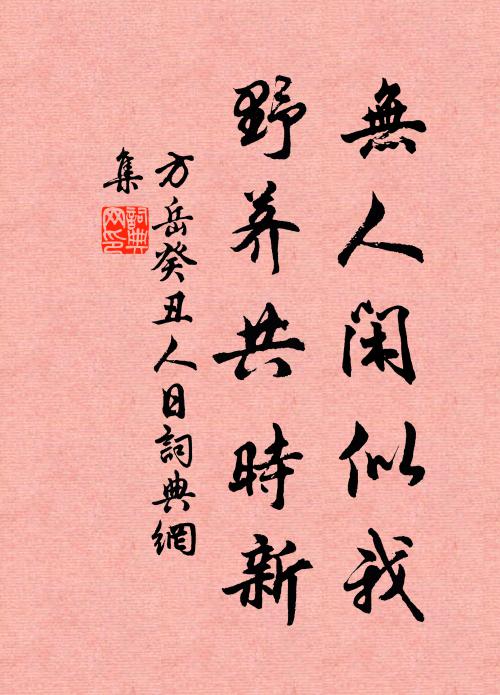 無人閑似我
野荠共時新
方岳癸丑人日詞典網
集
詞典
网印